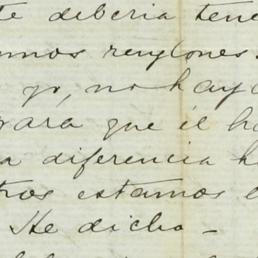 te deberia tene
mos renglones.
yo, no hay
para que él ha
a diferencia h
tros estamos
He dicho —